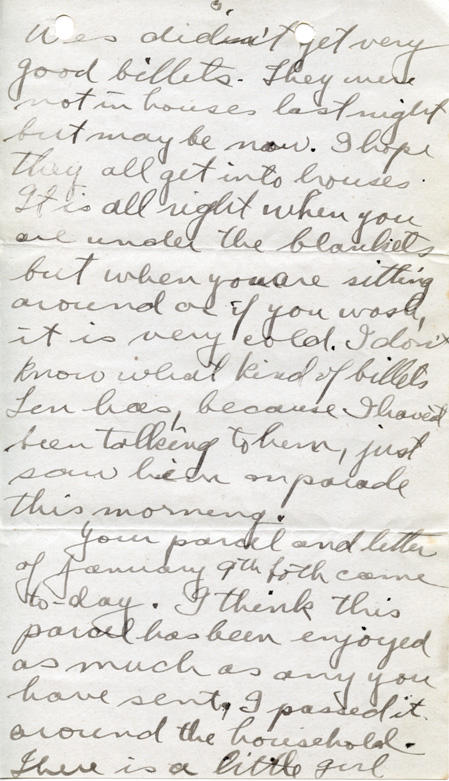 3.
Wes didn't get very
good billets. They were
not in houses last night
but may be now. I hope
they all get into houses.
It is all right when you
are under the blankets
but when you are sitting
around or if you wash,
it is very cold. I don't
know what kind of billets
Len has, because I haven't
been talking to him, just
saw him on parade
this morning.
Your parcel and letter
of January 9th both came
to-day. I think this
parcel has been enjoyed
as much as any you
have sent, I passed it
around the household.
There is a little girl